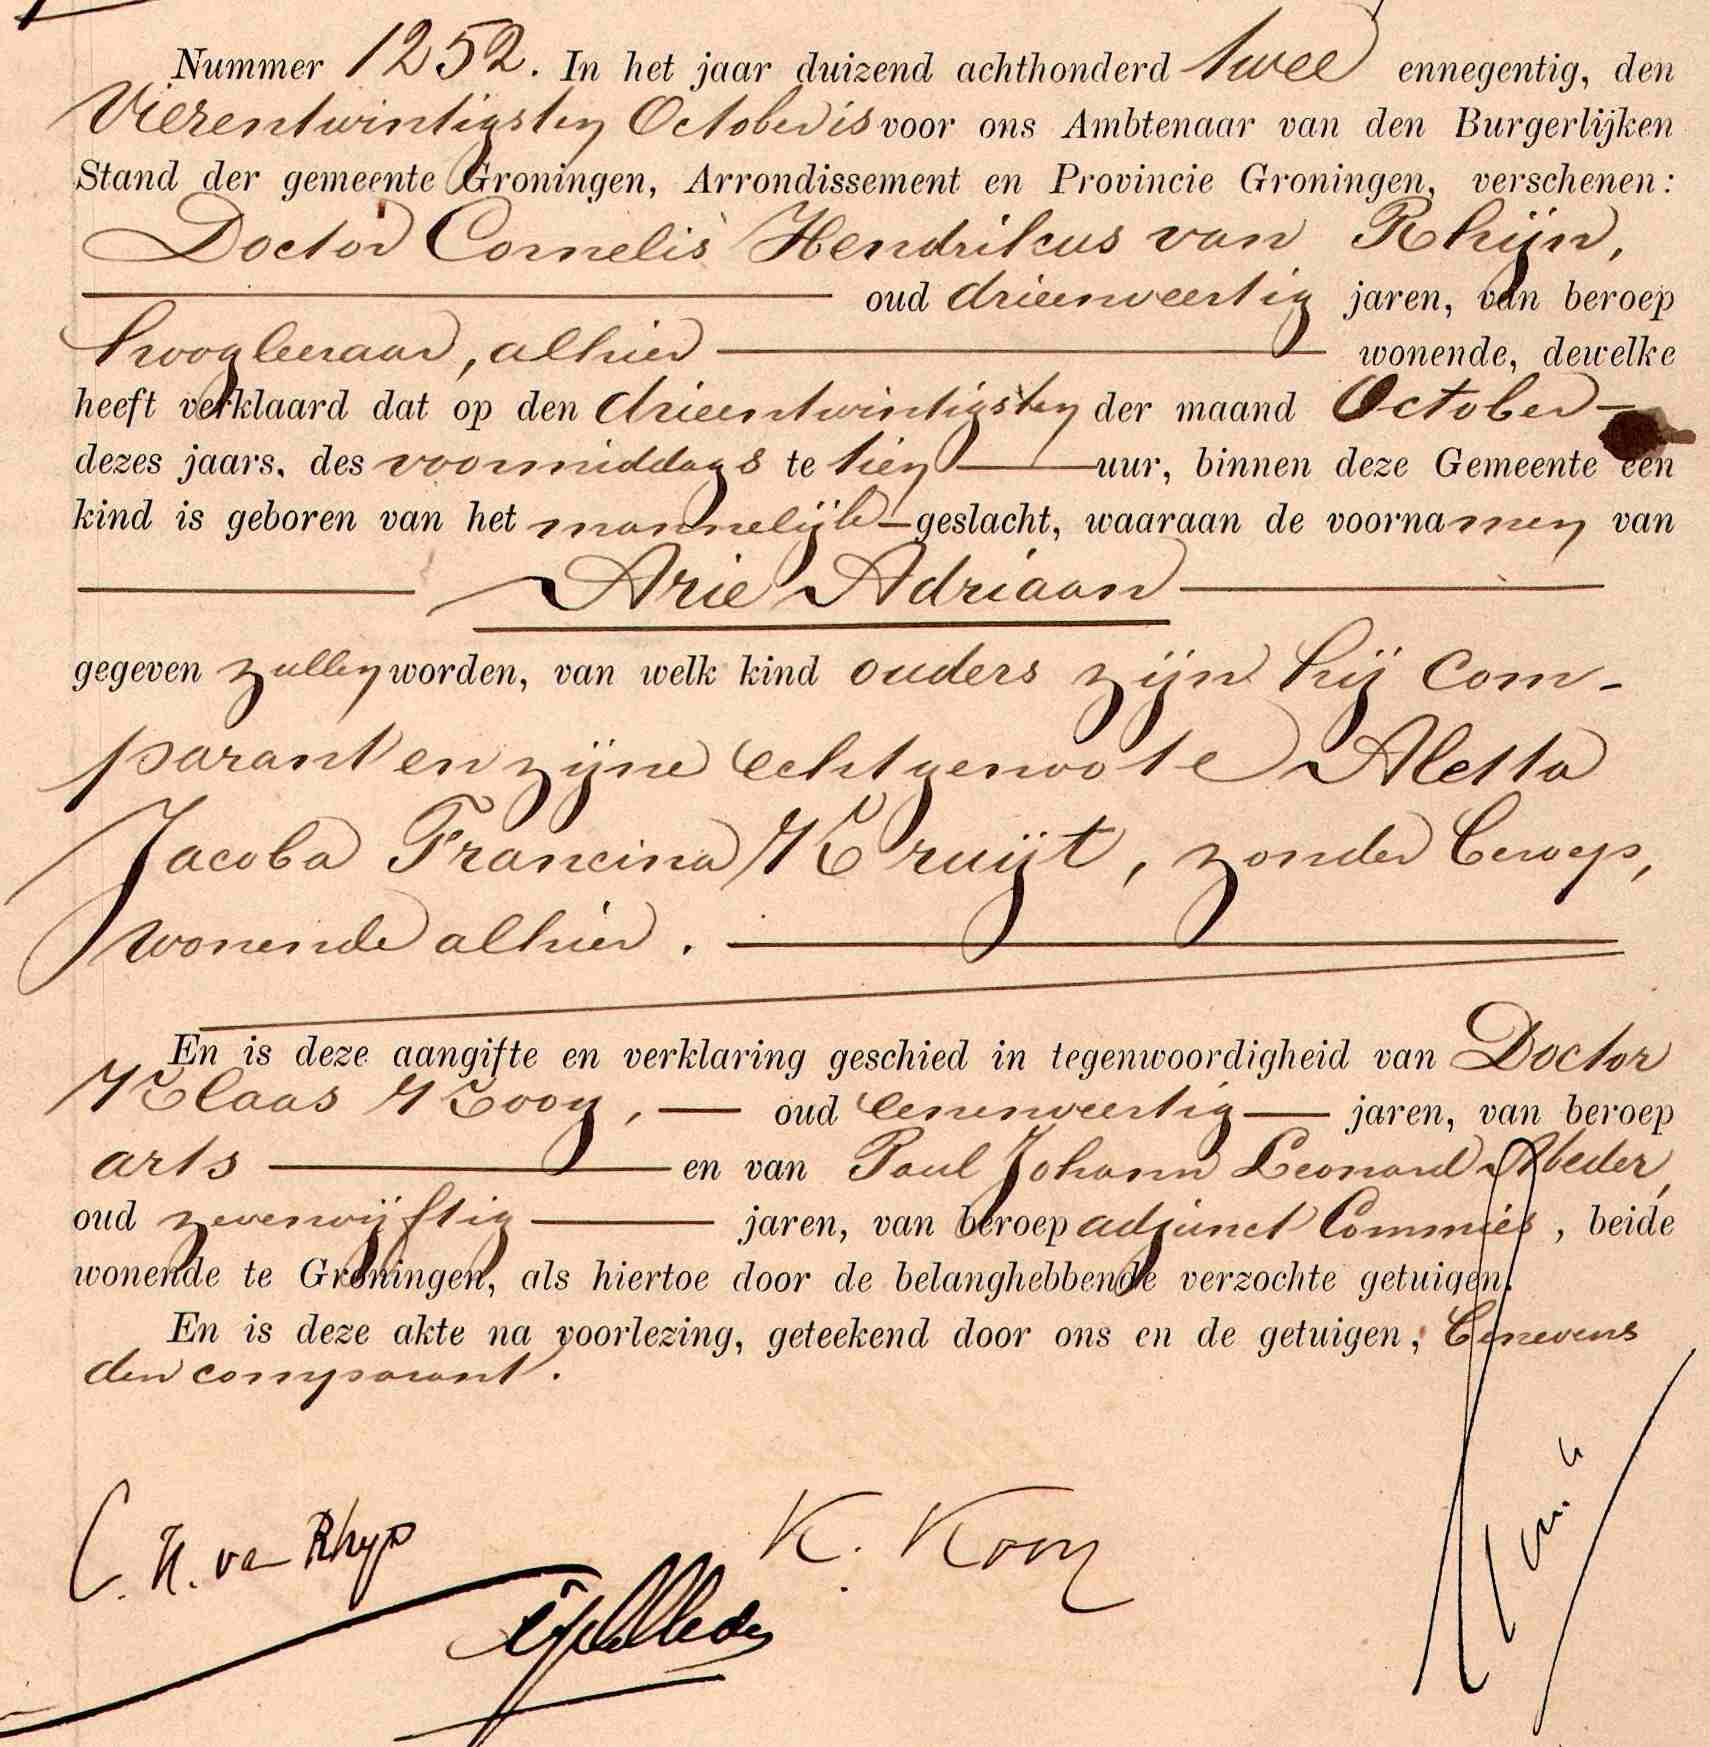 Nummer 1252. In het jaar duizend achthonderd twee ennegentig, den
Vierentwintigsten October is voor ons Ambtenaar van den Burgerlijken
Stand der gemeente Groningen, Arrondissement en Provincie Groningen, verschenen:
Doctor Cornelis Hendrikus van Rhijn,
oud drieenveertig jaren, van beroep
hoogleeraar, alhier wonende, dewelke
heeft verklaard dat op den drieentwintigsten der maand October
dezes jaars, des voormiddags te tien uur, binnen deze Gemeente een
kind is geboren van het mannelijk geslacht, waaraan de voornamen van
Arie Adriaan
gegeven zullen worden, van welk kind ouders zijn hij com-
parant en zijne echtgenoote Aletta
Jacoba Francina Kruijt, zonder beroep,
wonende alhier.
En is deze aangifte en verklaring geschied in tegenwoordigheid van Doctor
Klaas Kooy, oud eenenveertig jaren, van beroep
arts en van Paul Johann Leonard Abeder,
oud zevenvijftig jaren, van beroep adjunct Commies, beide
wonende te Groningen, als hiertoe door de belanghebbende verzochte getuigen.
En is deze akte na voorlezing, geteekend door ons en de getuigen, benevens
den comparant.
C. H. van Rhyn
K. Kooy